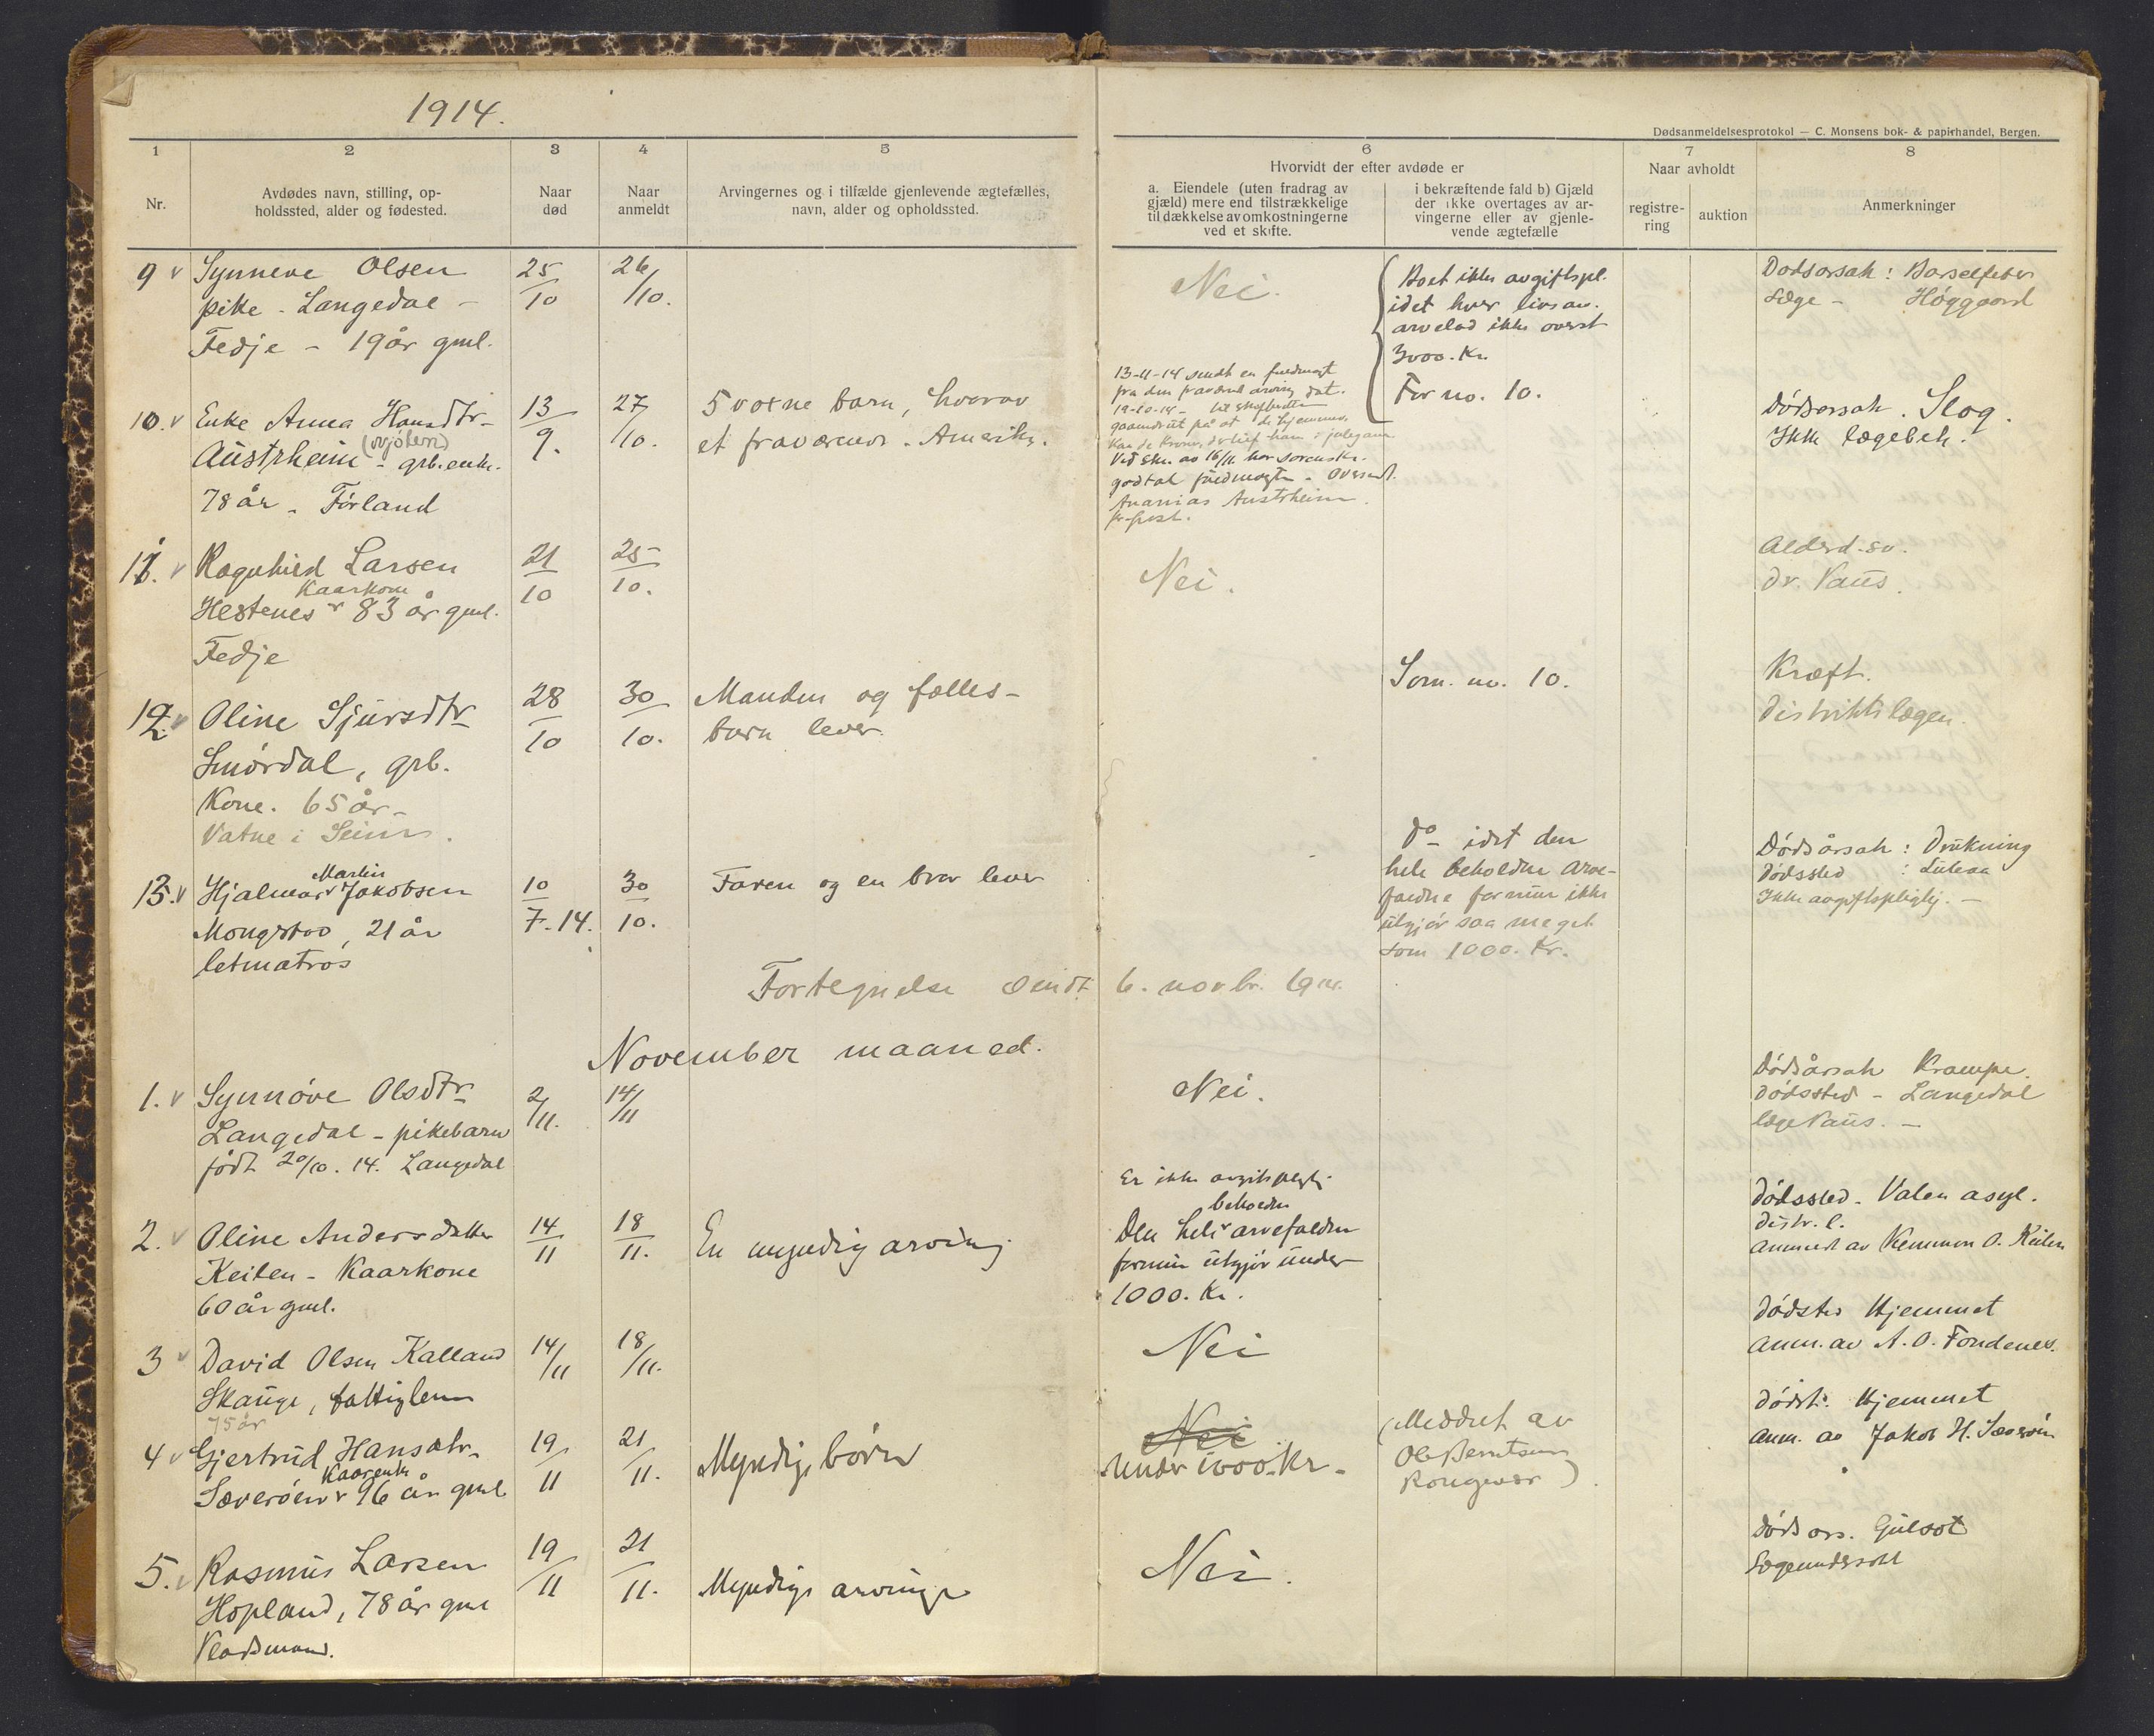 1914.
Dødsanmeldelsesprotokol — C. Monsens bok- & papirhandel, Bergen.
1 2 3 4 5 6 7 8
Nr.
Avdødes navn, stilling, op-
holdssted, alder og fødested.
Naar
død
Naar
anmeldt
Arvingernes og i tilfælde gjenlevende ægtefælles,
navn, alder og opholdssted.
Hvorvidt der efter avdøde er
a. Eiendele (uten fradrag av
gjæld) mere end tilstrækkelige
til dækkelse av omkostningerne
ved et skifte.
i bekræftende fald b) Gjæld
der ikke overtages av ar-
vingerne eller av gjenle-
vende ægtefælle
Naar avholdt
registre-
ring
auktion
Anmerkninger
9 v Synneve Olsen
pike - Langedal -
Fedje - 19 år gml.
25/10
26/10.
Nei.
Boet ikke avgiftspl.
idet hver livsarv.
arvelod ikke overst
3000. Kr.
For no. 10.
Dødsorsak: Barselfeber
Læge - Høggaard
10. v Enke Anna Hansdtr
Austrheim - grb. enke.
78 år - Førland
13/9.
27/10.
5 voxne barn, hvorav
et fraværende - Amerika.
13-11-14 sendt en fuldmagt
fra den fraværende arving dat.
19-10-14 -
gaaende ut på at
Ved skr. av 16/11. har sorenskr.
godtat fuldmagten - Oversendt.
Ananias Austrheim.
Dødsorsak. Slag.
Ikke lægebeh.
11. v Ragnhild Larsen
Kaarkone
Hestenes v 83 år gml.
Fedje
21/10
25/10.
Nei.
Alderd. sv.
Dr. Vaus.
12. v Oline Sjursdtr
Smørdal, grb.
Kone. 65 år -
Vatne i Seim.
28/10
30/10.
Manden og fælles-
barn lever.
Som no. 10.
Kræft.
Distriktslægen.
13. v Hjalmar v Jakobsen
Martin
Mongstad, 21 år
letmatros
10/7-14.
30/10.
Faren og en bror lever
Do - idet den
hele beholdne arve-
faldne formue ikke
utgjør saa meget
som 1000. Kr.
Dødsårsak: Drukning
Dødssted :
Ikke avgiftspligtig. -
Fortegnelse sendt 6. novbr. 1914.
November maaned.
1. v Synnøve Olsdtr
Langedal - pikebarn
født 20/10. 14. Langedal
2/11.
14/11
Nei.
Dødsårsak Krampe.
Dødssted - Langedal
læge Vaus. -
2. v Oline Andersdatter
Keilen - Kaarkone
60 år gml.
14/11
18/11.
En myndig arving
Er ikke avgiftspligtig.
beholdne
Den hele v arvefaldne
formue utgjør under
1000. Kr.
Dødssted - Valen asyl.
distr. l.
Anmeldt av Kemmen O. Keilen
3 v David Olsen Kalland
Skauge, fattiglem
75 år
14/11
18/11.
Nei
Dødsted Hjemmet
Anm. av A. O. Fondenes.
4 v Gjertrud Hansdtr.
Kaarenke
Sæverøen v 96 år gml.
19/11
21/11.
Myndige børn
Nei
under 1000 Kr -
(Meddelt av
Ole Berntsen
Rongevær)
Dødst. Hjemmet
Anm. av Jakob H. Sæverøen
5. v Rasmus Larsen
Hopland, 78 år gml
Vladsmand.
19/11
21/11.
Myndige arvinger
Nei.
Dødsors. Gulsot
Lægeundersøkt